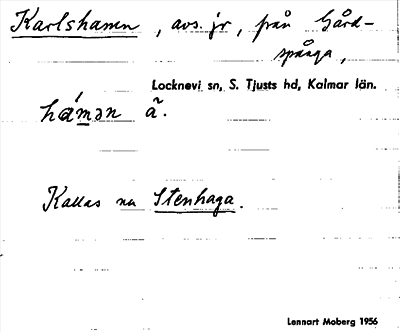 Karlshamn, avs. jr, från Gård-
spånga,
Locknevi sn, S. Tjusts hd, Kalmar län.
hámən ã.
Kallas nu Stenhaga.
Lennart Moberg 1956